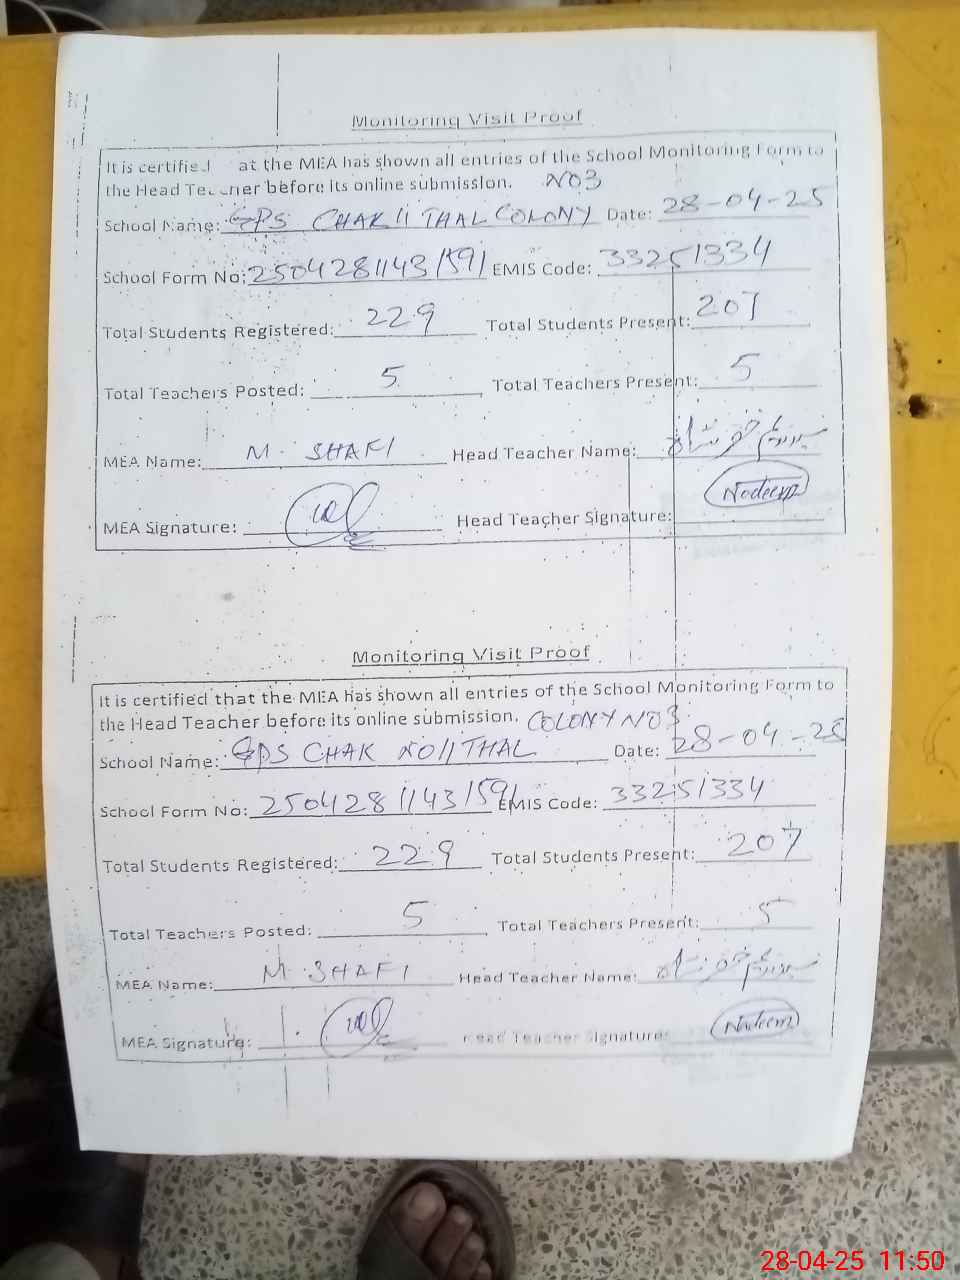 Monitoring Visit Proof
It is certified at the MEA has shown all entries of the School Monitoring Form to
the Head Teacher before its online submission. NO3
School Name: GPS CHAK 11 THAL COLONY Date: 28-04-25
School Form No: 2504281143/591 EMIS Code: 33251334
Total Students Registered: 229 Total Students Present: 207
Total Teachers Posted: 5 Total Teachers Present: 5
MEA Name: M. SHAFI Head Teacher Name:
MEA Signature: Head Teacher Signature: Nadeem
Monitoring Visit Proof
It is certified that the MEA has shown all entries of the School Monitoring Form to
the Head Teacher before its online submission. COLONY NO3
School Name: GPS CHAK NO11 THAL Date: 28-04-25
School Form No: 2504281143/591 EMIS Code: 33251334
Total Students Registered: 229 Total Students Present: 207
Total Teachers Posted: 5 Total Teachers Present: 5
MEA Name: M. SHAFI Head Teacher Name:
MEA Signature: Head Teacher Signature: Nadeem
28-04-25 11:50